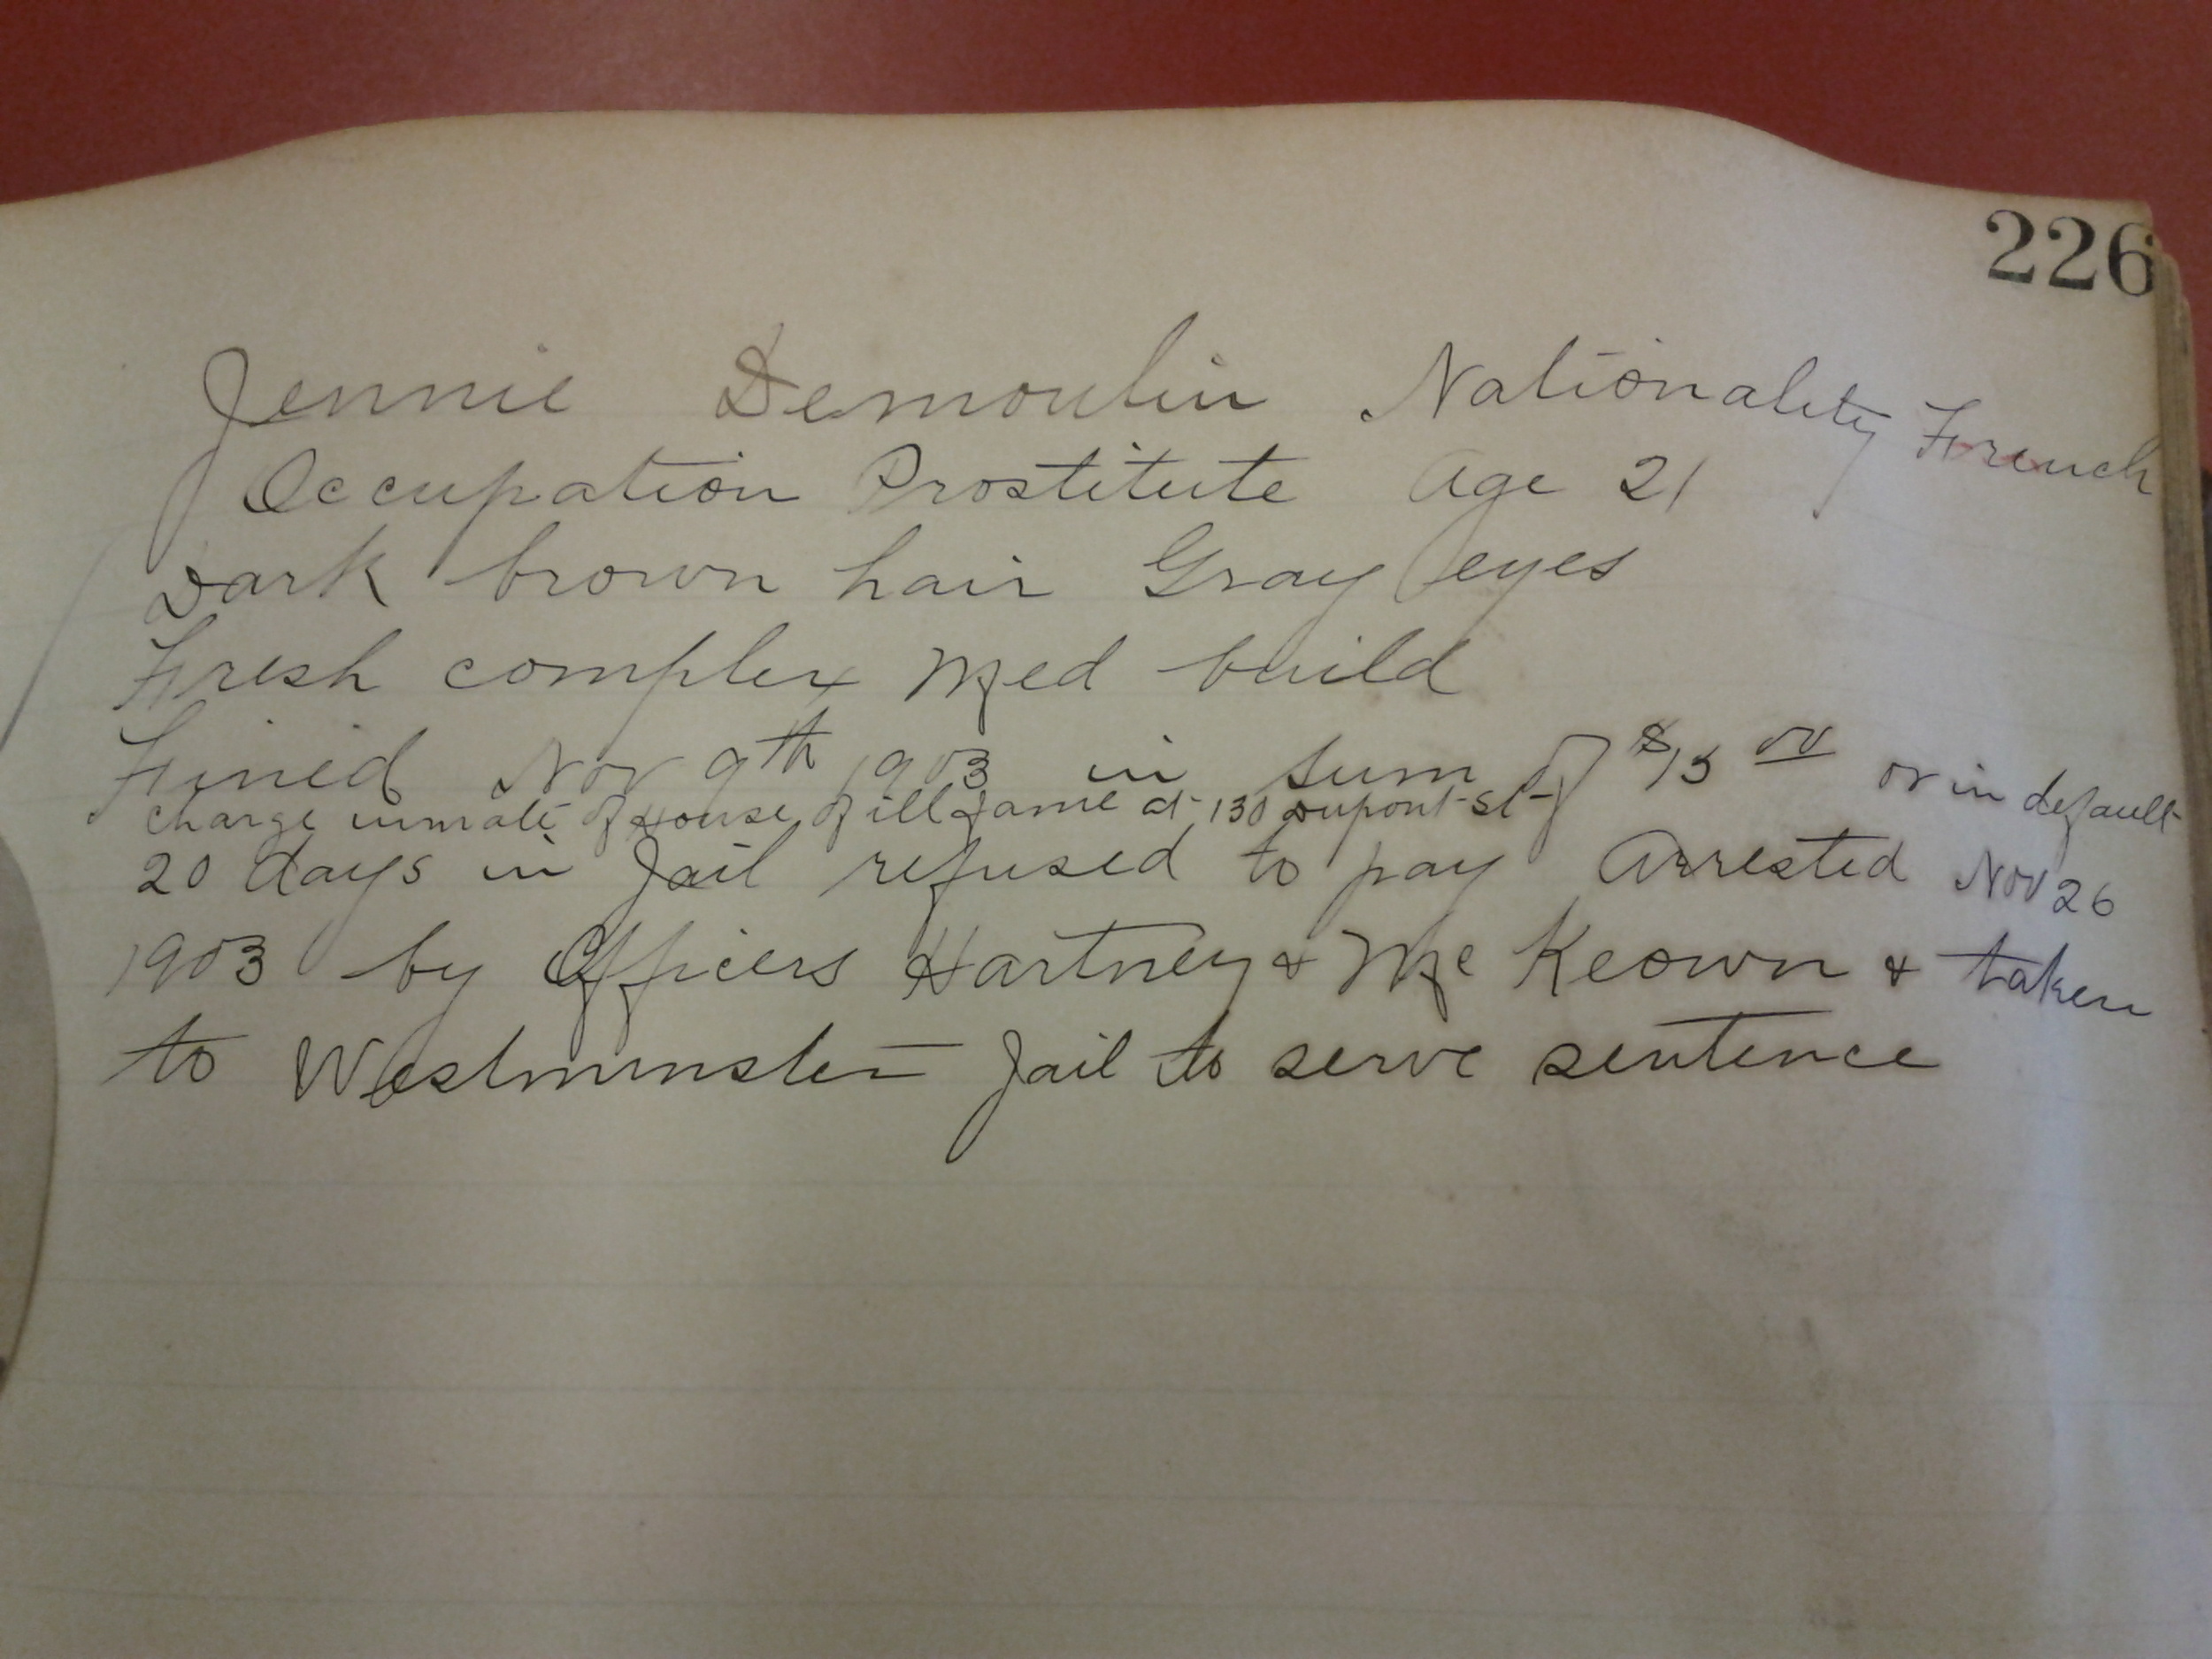 226
Jennie Demoulin Nationality French
Occupation Prostitute Age 21
Dark brown hair Gray eyes
Fresh complex Med build
Fined Nov 9th 1903 in sum of $15 00 or in default
charge inmate of House of ill fame at 130 Dupont St
20 days in Jail refused to pay Arrested Nov 26
1903 by Officers Hartney & McKeown & taken
to Westminster Jail to serve sentence